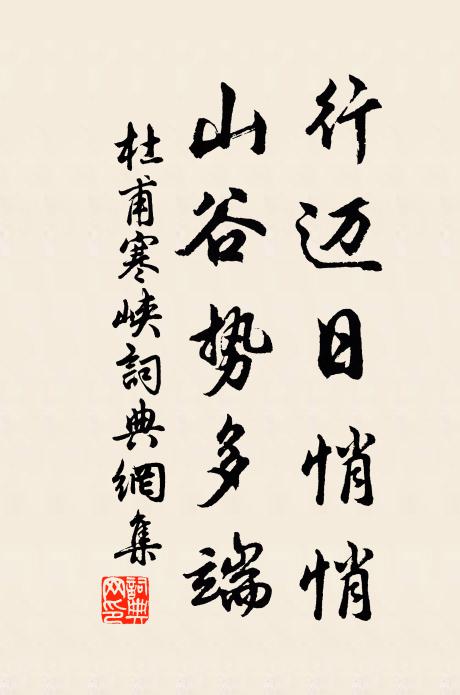 行迈日悄悄
山谷势多端
杜甫寒峡詞典網集
詞典网印